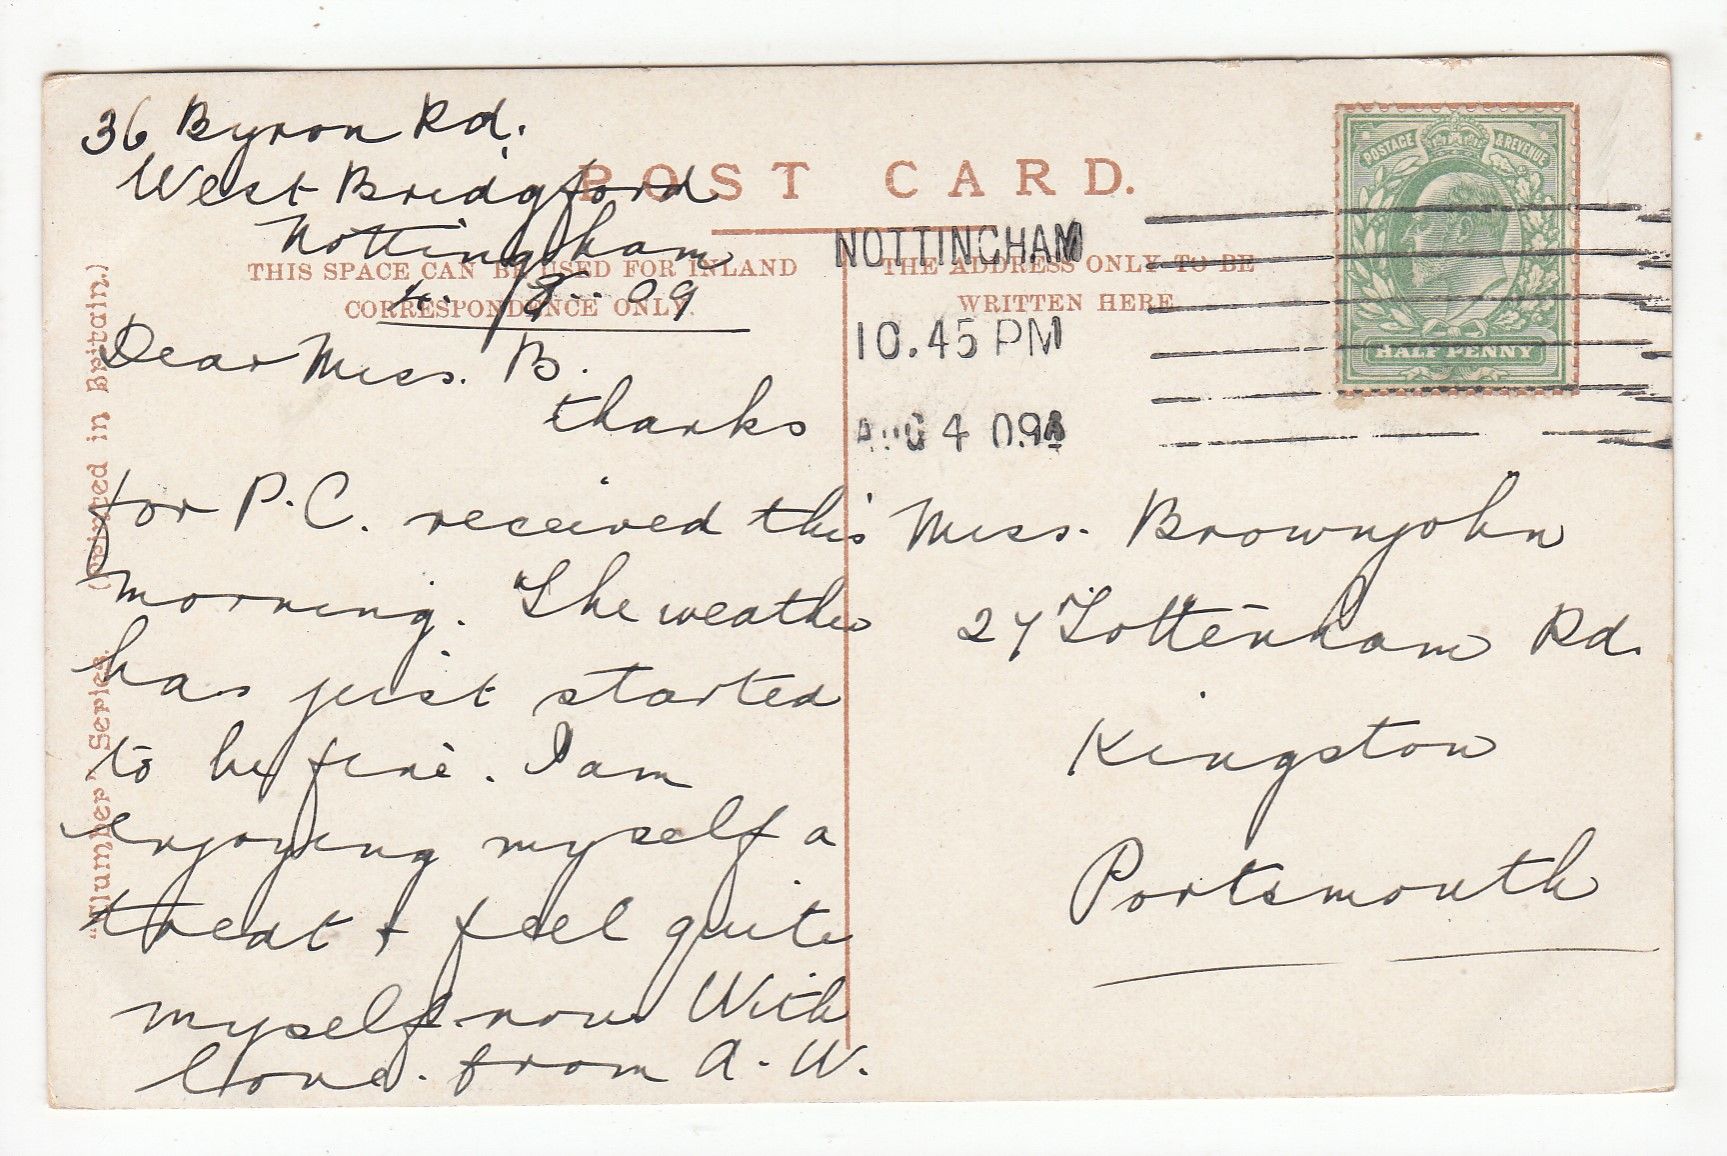 36 Byron Rd.
West Bridgford
Nottingham
4. 8. 09
POST CARD.
THIS SPACE CAN BE USED FOR INLAND
CORRESPONDENCE ONLY.
THE ADDRESS ONLY TO BE
WRITTEN HERE
NOTTINGHAM
10.45 PM
AUG 4 09
POSTAGE & REVENUE
HALF PENNY
Dear Miss. B.
thanks
for P.C. received this
morning. The weather
has just started
to be fine. I am
enjoying myself a
treat & feel quite
myself now. With
love. from A. W.
Miss. Brownjohn
27 Tottenham Rd.
Kingston
Portsmouth
"Clumber" Series. (Printed in Britain.)